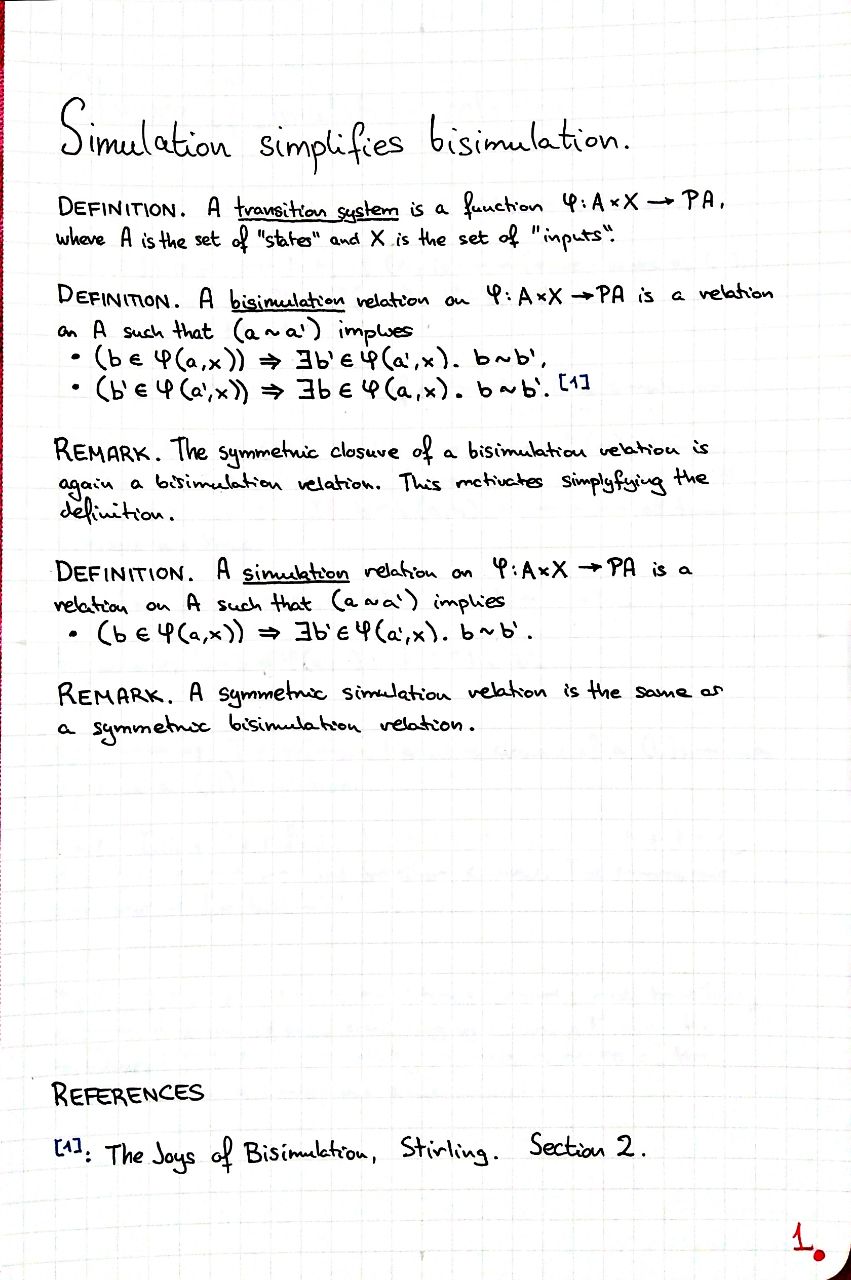 Simulation simplifies bisimulation.
DEFINITION. A transition system is a function φ: A×X → PA,
where A is the set of "states" and X is the set of "inputs".
DEFINITION. A bisimulation relation on φ: A×X → PA is a relation
on A such that (a ~ a') implies
• (b ∈ φ(a,x)) ⇒ ∃b' ∈ φ(a',x). b ~ b',
• (b' ∈ φ(a',x)) ⇒ ∃b ∈ φ(a,x). b ~ b'. [1]
REMARK. The symmetric closure of a bisimulation relation is
again a bisimulation relation. This motivates simplyfying the
definition.
DEFINITION. A simulation relation on φ: A×X → PA is a
relation on A such that (a ~ a') implies
• (b ∈ φ(a,x)) ⇒ ∃b' ∈ φ(a',x). b ~ b'.
REMARK. A symmetric simulation relation is the same as
a symmetric bisimulation relation.
REFERENCES
[1]: The Joys of Bisimulation, Stirling. Section 2.
1.